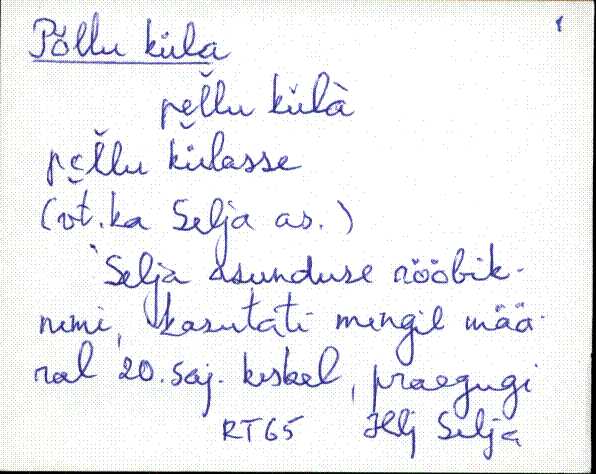 Põllu küla
pe̮l̆lu külà
pe̮l̆lu külasse
(vt. ka Selja as.)
`Selja asunduse rööbik-
nimi, kasutati mingil mää-
ral 20. saj. keskel, praegugi
RT65 Hlj Selja